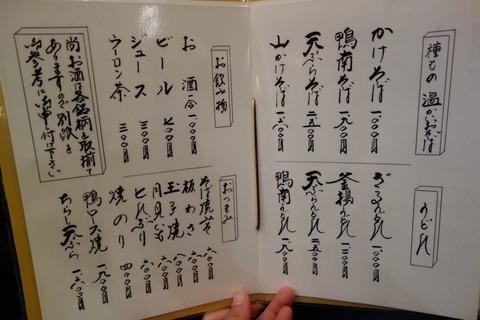 種もの 温かいおそば
かけそば 一、〇〇〇円
鴨南そば 一、九〇〇円
天ぷらそば 二、五〇〇円
山かけそば
うどん
ざるうどん
釜揚うどん
天ぷらうどん 二、五〇〇円
鴨南うどん 一、九〇〇円
お飲み物
お酒 一合 一、〇〇〇円
ビール 七〇〇円
ジュース 三〇〇円
ウーロン茶 三〇〇円
尚 お酒は各銘柄を取揃て
ありますので別紙を
御参考に御申し付け下さい
おつまみ
そば焼みそ 六〇〇円
板わさ 六〇〇円
玉子焼 六〇〇円
月見いも
とんぶり 六〇〇円
焼のり 四〇〇円
鴨ロース焼 一、九〇〇円
ちらし天ぷら